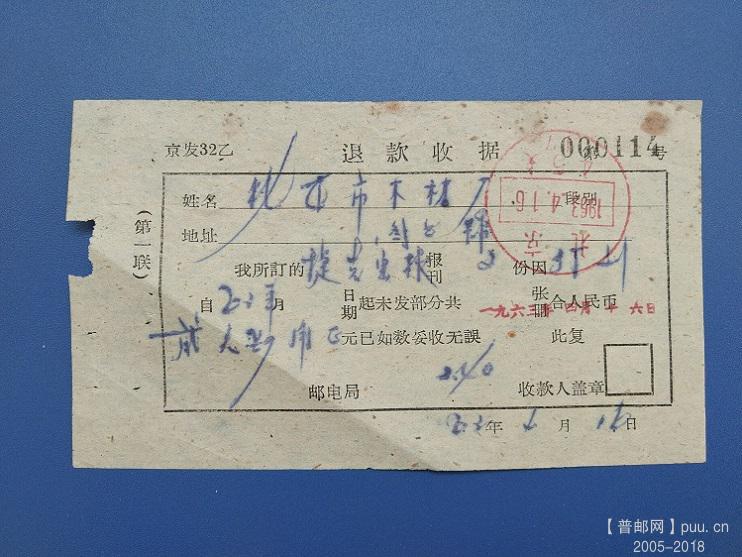 京发32乙 退款收据 000114号
(第一联)
姓名 北京市木材厂 段别
地址 图书馆
我所订的 捷克画报 报刊 份因停刊
自 年 月 日期 起未发部分共 张册 合人民币
一九六三年四月十六日
贰元 角 元已如数妥收无誤 此复
邮电局 收款人盖章
年 4 月 16 日
1963.4.16
北京
【普邮网】puu.cn
2005-2018